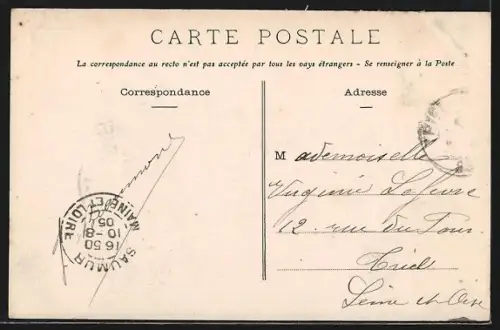 CARTE POSTALE
La correspondance au recto n'est pas acceptée par tous les pays étrangers - Se renseigner à la Poste
Correspondance
Adresse
Mademoiselle
Virginie Lefevre
12. rue du Four
Triel
Seine et Oise
SAUMUR
16 50
10-8
05
MAINE ET LOIRE